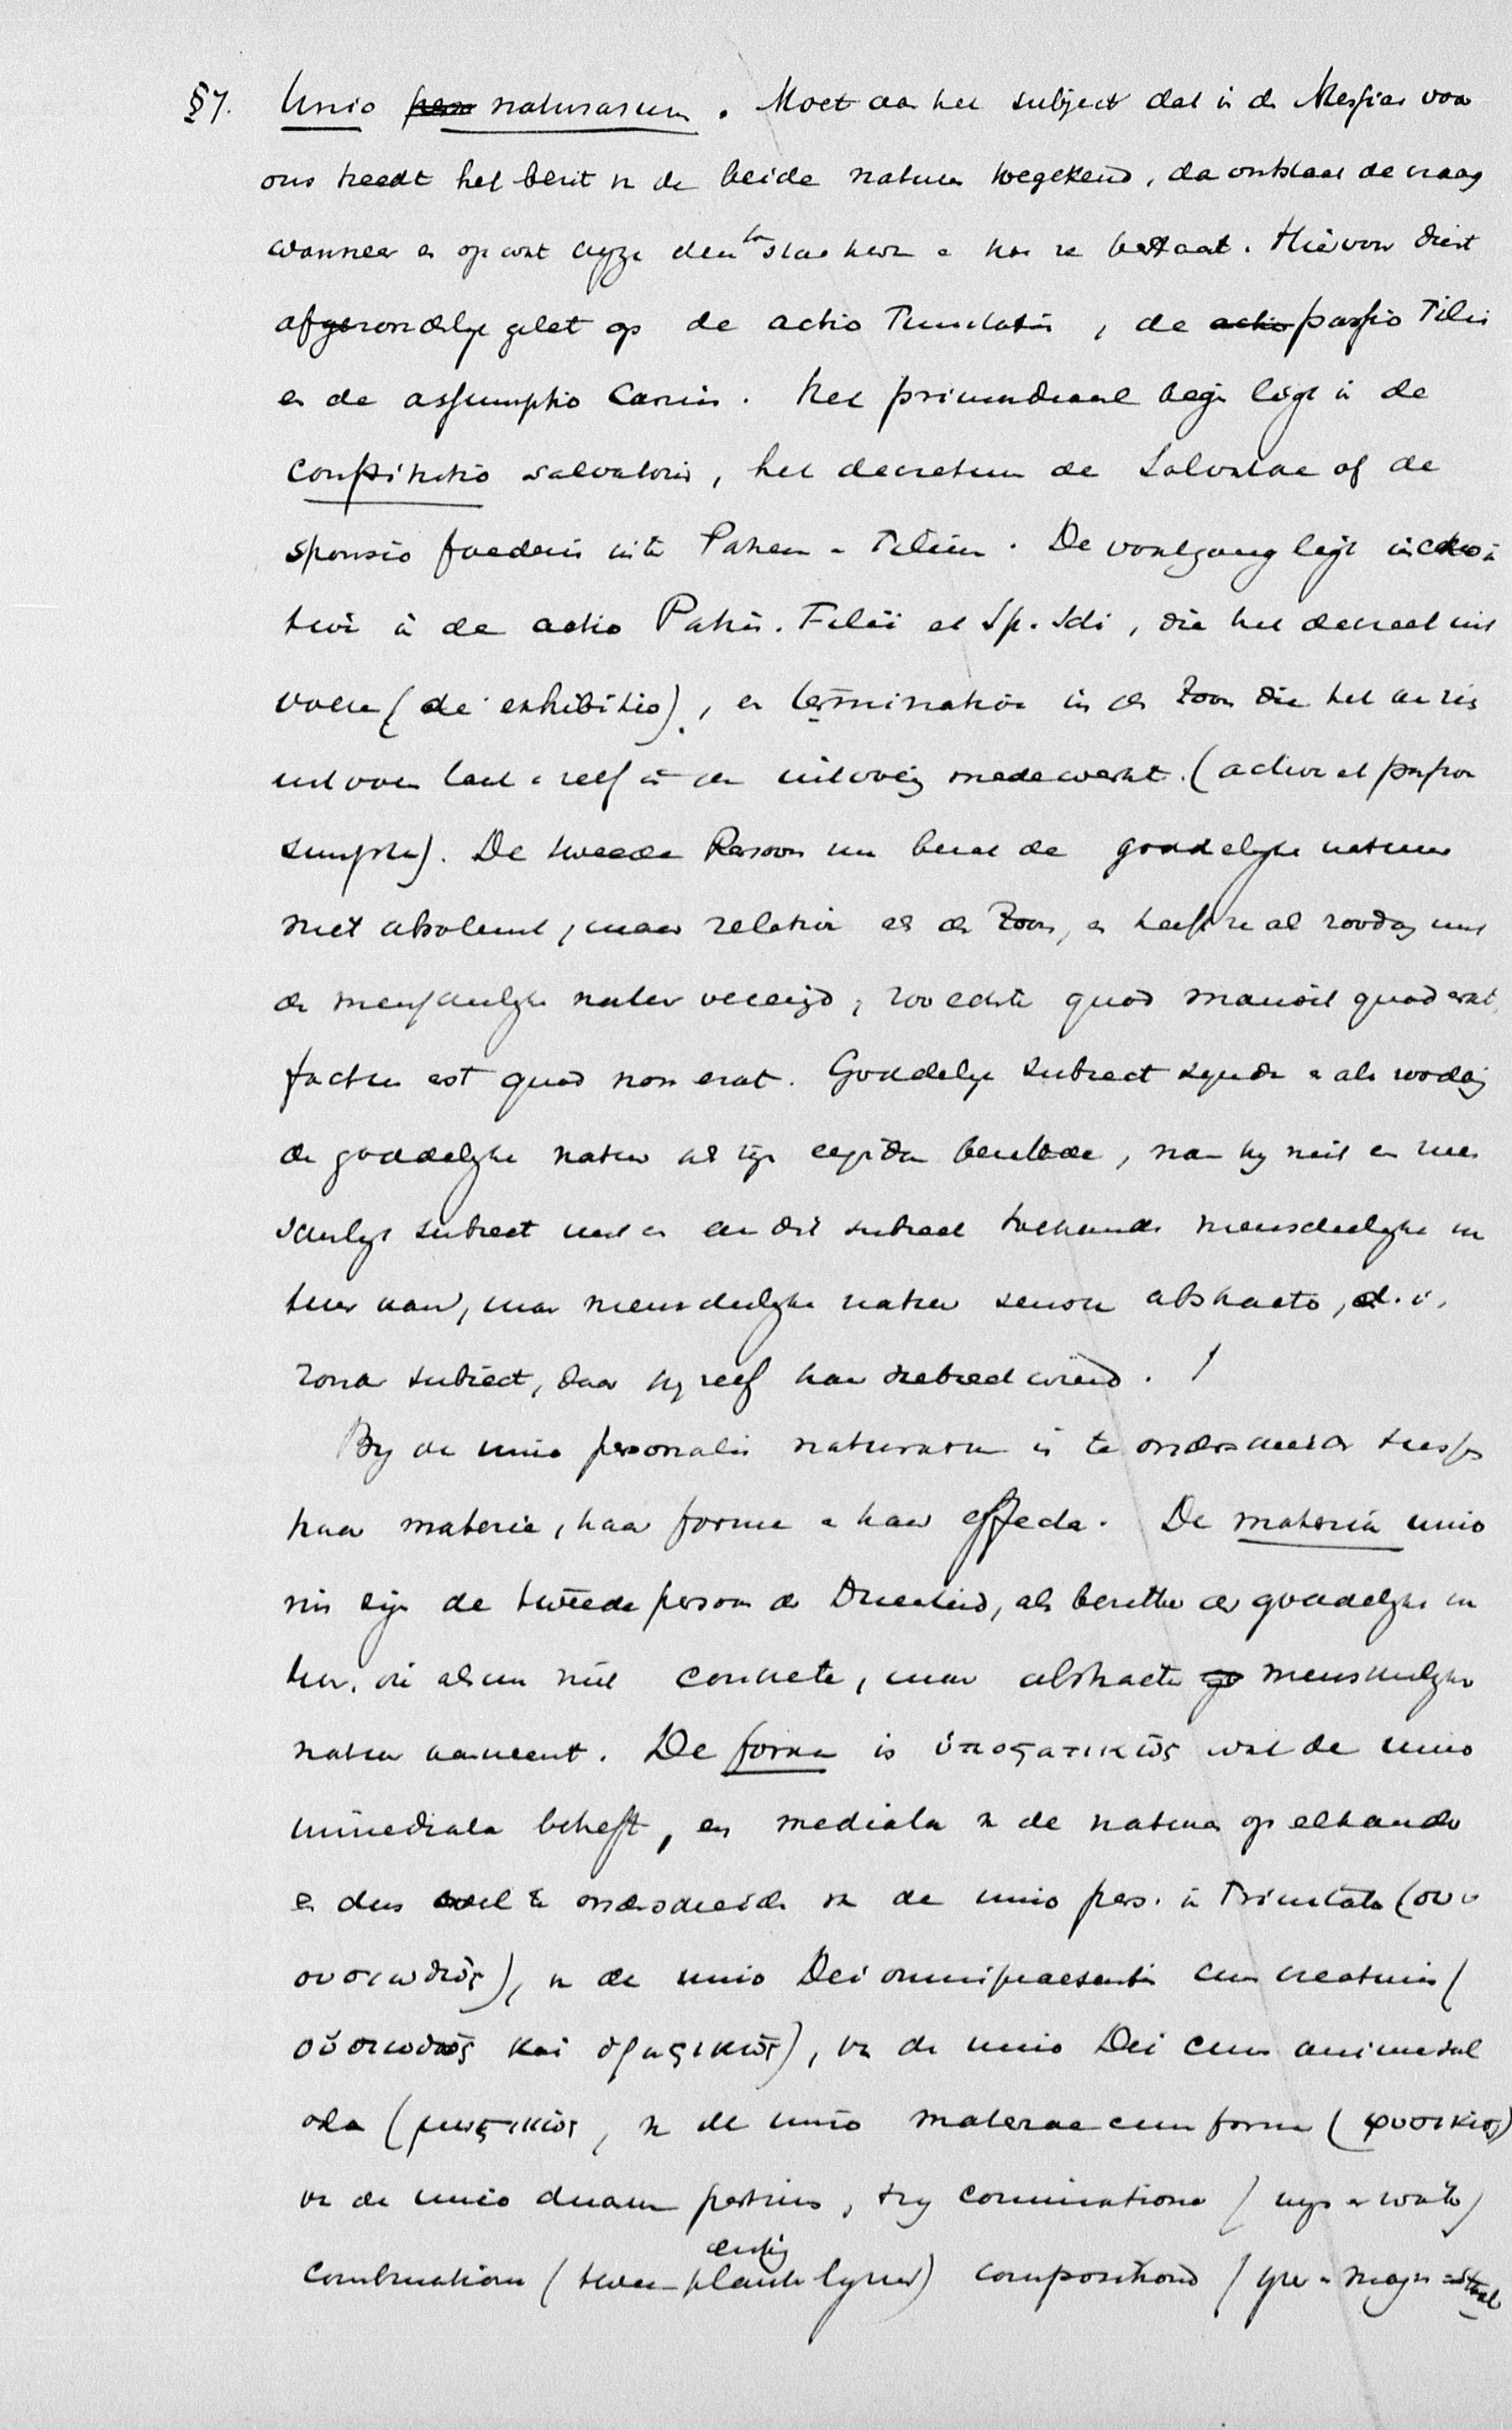 §7. Unio naturarum. Moet aan het subject dat in de Messias voor
ons treedt het bezit v. de beide naturen toegekend, da ontstaat de vraag
wanneer en op wat wyze deze bestaat. Hiervoor dient
afzonderlyk gelet op de actio Trinitatis, de passio Filii
en de assumptio Carnis. Het primordiaal begin ligt in de
constitutio salvatoris, het decretum de Salvatore of de
sponsio foederis inter Patrem e Filium. De voortgang ligt
in de actio Patris. Filii et Sp. Sti, die het decreet uit
voeren (de exhibitio), en terminative in de Zoon die het aan zich
uitvoeren laat e zelf in de uitvoering medewerkt. (active et passive
sumpta). De tweede Persoon nu bezat de goddelyke natuur
niet absoluut, maar relative als de Zoon, en heeft ze als zoodanig met
de menschelyke natuur vereenigd, zoo echter quod mansit quod erat,
factus est quod non erat. Goddelyk subject zynde e als zoodanig
de goddelyke natuur als zyn eigendom bezittende, nam hy niet een men
schelyk subject met een aan dit subject toekomende menschelyke na
tuur aan, maar menschelyke natuur sensu abstracto, d.i.
zonder subject, daar hy zelf haar subject wierd.
By de unio personalis naturarum is te onderscheiden tusschen
haar materie, haar forma e haar effecta. De materia unio
nis zyn de tweede persoon der Drieeenheid, als bezitter der goddelyke na
tuur, die alsnu niet concrete, maar abstracte menschelyke
natuur aanneemt. De forma is ὑποστατικῶς wat de unio
immediata betreft, en mediata v. de naturen op elkander
e dus wel te onderscheiden van de unio pers. in Trinitate (συν
ουσιωδῶς), v. de unio Dei omnipraesentis cum creaturis (
οὐσιωδῶς καὶ δραστικῶς), van de unio Dei cum anima
(μυστικῶς, v. de unio materiae cum forma (φυσικῶς)
van de unio duarum partium, hetzy
combinatione (twee planken lymen) compositione